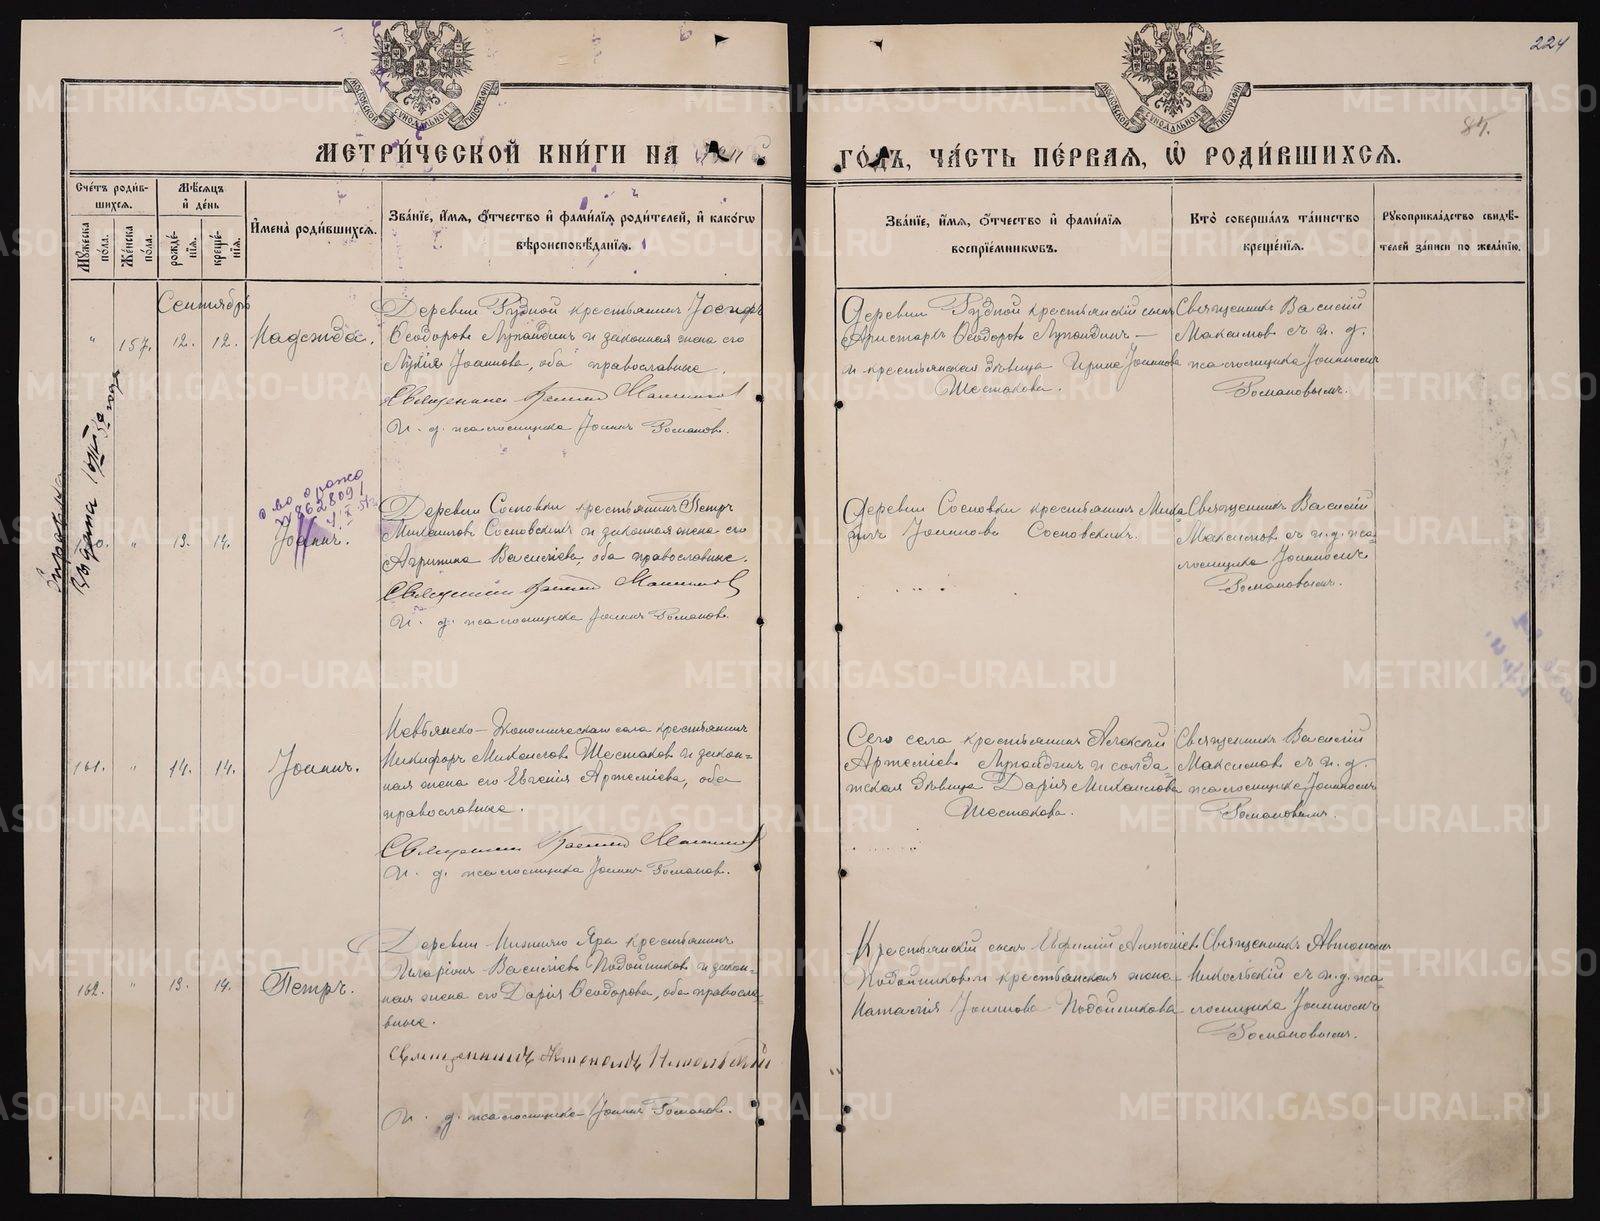 224
85.
МОСКОВСКОЙ СѴНОДАЛЬНОЙ ТИПОГРАФІИ
МОСКОВСКОЙ СѴНОДАЛЬНОЙ ТИПОГРАФІИ
МЕТРИ́ЧЕСКОЙ КНИ́ГИ НА
ГО́ДЪ, ЧА́СТЬ ПЕ́РВАѦ, Ѡ҆ РОДИ́ВШИХСѦ.
Сче́тъ роди́в-
шихсѧ.
Мꙋжеска пола.
Же́нска по́ла.
Мѣ́сѧцъ
и҆ де́нь
рожде́-
нїѧ.
креще́-
нїѧ.
И҆мена̀ роди́вшихсѧ.
Зва́нїе, и҆́мѧ, ѻ҆́тчество и҆ фами́лїѧ роди́телей, и҆ како́гѡ
вѣроисповѣ́данїѧ.
Зва́нїе, и҆́мѧ, ѻ҆́тчество и҆ фами́лїѧ
воспрїе́мникѡвъ.
Кто̀ соверша́лъ та́инство
креще́нїѧ.
Рꙋкоприкла́дство свидѣ́-
телей за́писи по жела́нїю.
Сентябрь
" 157. 12. 12. Надежда.
Деревни Рудной крестьянинъ Іосифъ
Ѳеодоровъ Лупандинъ и законная жена его
Лукія Іоаннова, оба православные.
Священникъ Василій Максимовъ
И. д. псаломщика Іоаннъ Романовъ.
Деревни Рудной крестьянскій сынъ
Аристархъ Ѳеодоровъ Лупандинъ —
и крестьянская дѣвица Ирина Іоаннова
Шестакова.
Священникъ Василій
Максимовъ съ и. д.
псаломщика Іоанномъ
Романовымъ.
Справка
Выдана
года
862809
" 13. 14. Іоаннъ.
Деревни Сосновки крестьянинъ Петръ
Михаиловъ Сосновскихъ и законная жена его
Агрипина Василіева, оба православные.
Священникъ Василій Максимовъ
И. д. псаломщика Іоаннъ Романовъ.
Деревни Сосновки крестьянинъ Миха
илъ Іоанновъ Сосновскихъ.
Священникъ Василій
Максимовъ съ и. д. пса-
ломщика Іоанномъ
Романовымъ.
161. " 14. 14. Іоаннъ.
Невьянско-Экономическаго села крестьянинъ
Никифоръ Михаиловъ Шестаковъ и закон-
ная жена его Евгенія Артеміева, оба
православные.
Священникъ Василій Максимовъ
И. д. псаломщика Іоаннъ Романовъ.
Сего села крестьянинъ Алексій
Артеміевъ Лупандинъ и солда-
тская дѣвица Дарія Михаилова
Шестакова.
Священникъ Василій
Максимовъ съ и. д.
псаломщика Іоанномъ
Романовымъ.
162. " 13. 14. Петръ.
Деревни Нижняго Яра крестьянинъ
Иларіонъ Василіевъ Подойниковъ и закон-
ная жена его Дарія Ѳеодорова, оба правосла-
вные.
Священникъ Автономъ Никольскій
И. д. псаломщика Іоаннъ Романовъ.
Крестьянскій сынъ Евфимій Антоніевъ
Подойниковъ и крестьянская жена
Наталія Іоаннова Подойникова
Священникъ Автономъ
Никольскій съ и. д. пса-
ломщика Іоанномъ
Романовымъ.
METRIKI.GASO-URAL.RU